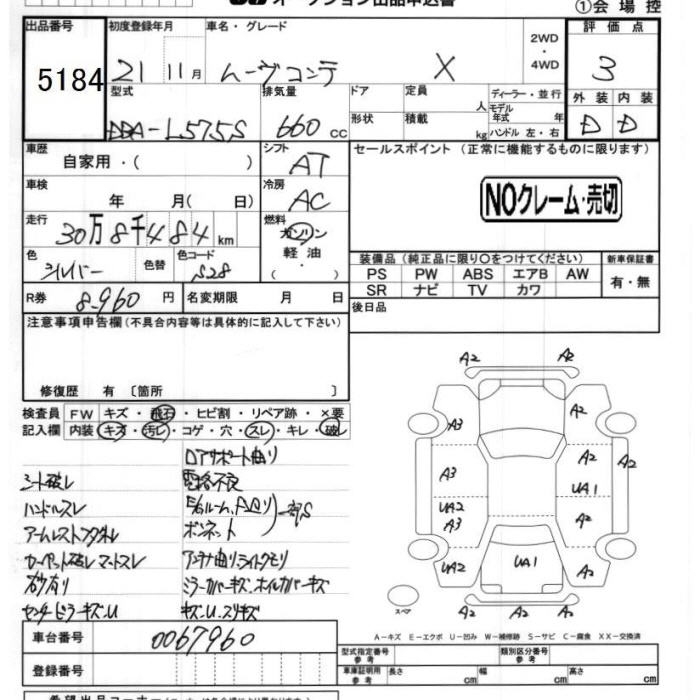 オークション出品申込書
①会場控
出品番号 初度登録年月 車名・グレード 2WD・4WD 評価点
5184 21 11月 ムーヴコンテ X 3
型式 排気量 ドア 定員 人 ディーラー・並行 外装 内装
DBA-L575S 660cc 形状 積載 kg モデル年式 年 ハンドル 左・右 D D
車歴 自家用・( ) シフト AT セールスポイント (正常に機能するものに限ります)
車検 年 月( 日) 冷房 AC NOクレーム・売切
走行 30万8千484km 燃料 ガソリン 軽油・( )
装備品(純正品に限り○をつけてください) 新車保証書
色 シルバー 色替 色コード S28
PS PW ABS エアB AW 有・無
SR ナビ TV カワ
R券 8,960円 名変期限 月 日 後日品
注意事項申告欄(不具合内容等は具体的に記入して下さい)
修復歴 有 〔箇所 〕
検査員 FW キズ・飛石・ヒビ割・リペア跡・×要
記入欄 内装 キズ・汚レ・コゲ・穴・スレ・キレ・破レ
ロアサポート曲リ
シート破レ
ハンドルスレ
カーペット破レ マットスレ
ボンネット
ミラーカバーキズ・ホイルカバーキズ
センターピラーキズ・U
A2 A2
A3 A2
A3 A2 A2
UA1
UA2 A3 A2
UA2 UA1 A2
A2 A2 A2
スペア
A-キズ E-エクボ U-凹み W-補修跡 S-サビ C-腐食 XX-交換済
車台番号 0067960
型式指定番号 参考 類別区分番号 参考
登録番号
車庫証明用 参考 長さ cm 幅 cm 高さ cm